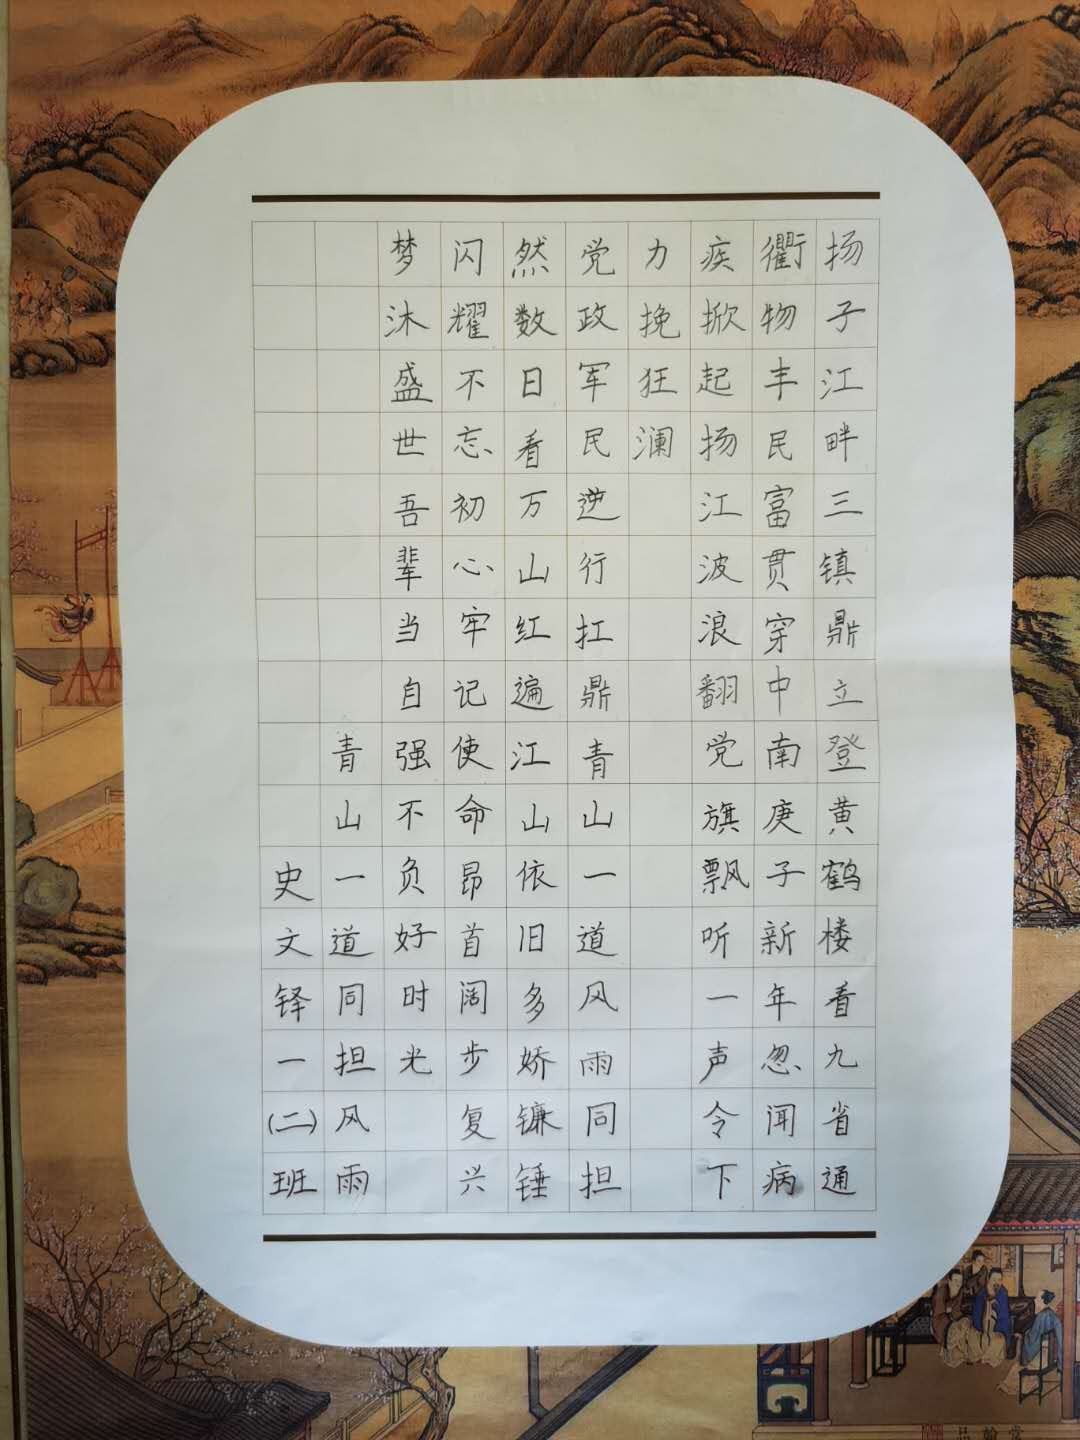 扬子江畔三镇鼎立登黄鹤楼看九省通
衢物丰民富贯穿中南庚子新年忽闻病
疾掀起扬江波浪翻党旗飘听一声令下
力挽狂澜
党政军民逆行扛鼎青山一道风雨同担
然数日看万山红遍江山依旧多娇镰锤
闪耀不忘初心牢记使命昂首阔步复兴
梦沐盛世吾辈当自强不负好时光
青山一道同担风雨
史文铎一(二)班
品翰堂